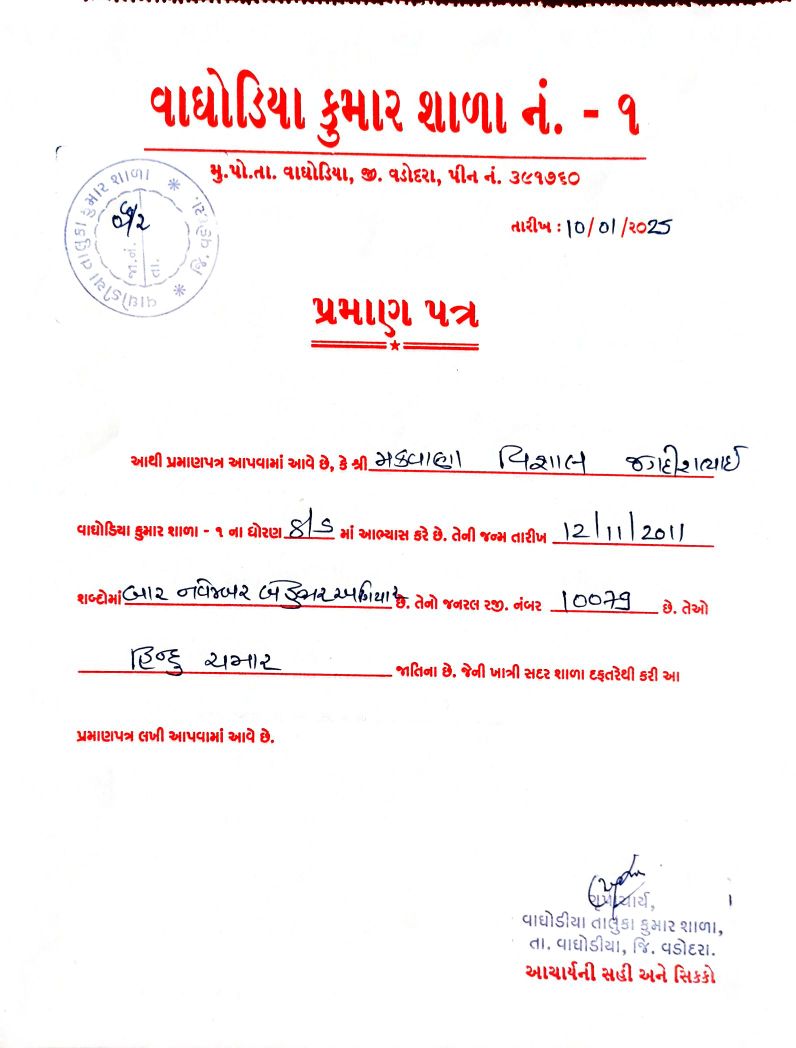 વાઘોડિયા કુમાર શાળા નં. - ૧
મુ.પો.તા. વાઘોડિયા, જી. વડોદરા, પીન નં. ૩૯૧૭૬૦
વાઘોડીયા તાલુકા કુમાર શાળા
જી. વડોદરા.
જા.નં.
તા.
તારીખ : 10/01/૨૦25
પ્રમાણ પત્ર
આથી પ્રમાણપત્ર આપવામાં આવે છે, કે શ્રી મકવાણા વિશાલ જગદીશભાઈ
વાઘોડિયા કુમાર શાળા - ૧ ના ધોરણ 8/ડ માં આભ્યાસ કરે છે. તેની જન્મ તારીખ 12/11/2011
શબ્દોમાં બાર નવેમ્બર બે હજાર અગિયાર છે. તેનો જનરલ રજી. નંબર 10079 છે. તેઓ
હિન્દુ ચમાર જાતિના છે. જેની ખાત્રી સદર શાળા દફતરેથી કરી આ
પ્રમાણપત્ર લખી આપવામાં આવે છે.
વાઘોડીયા તાલુકા કુમાર શાળા,
તા. વાઘોડીયા, જિ. વડોદરા.
આચાર્યની સહી અને સિકકો